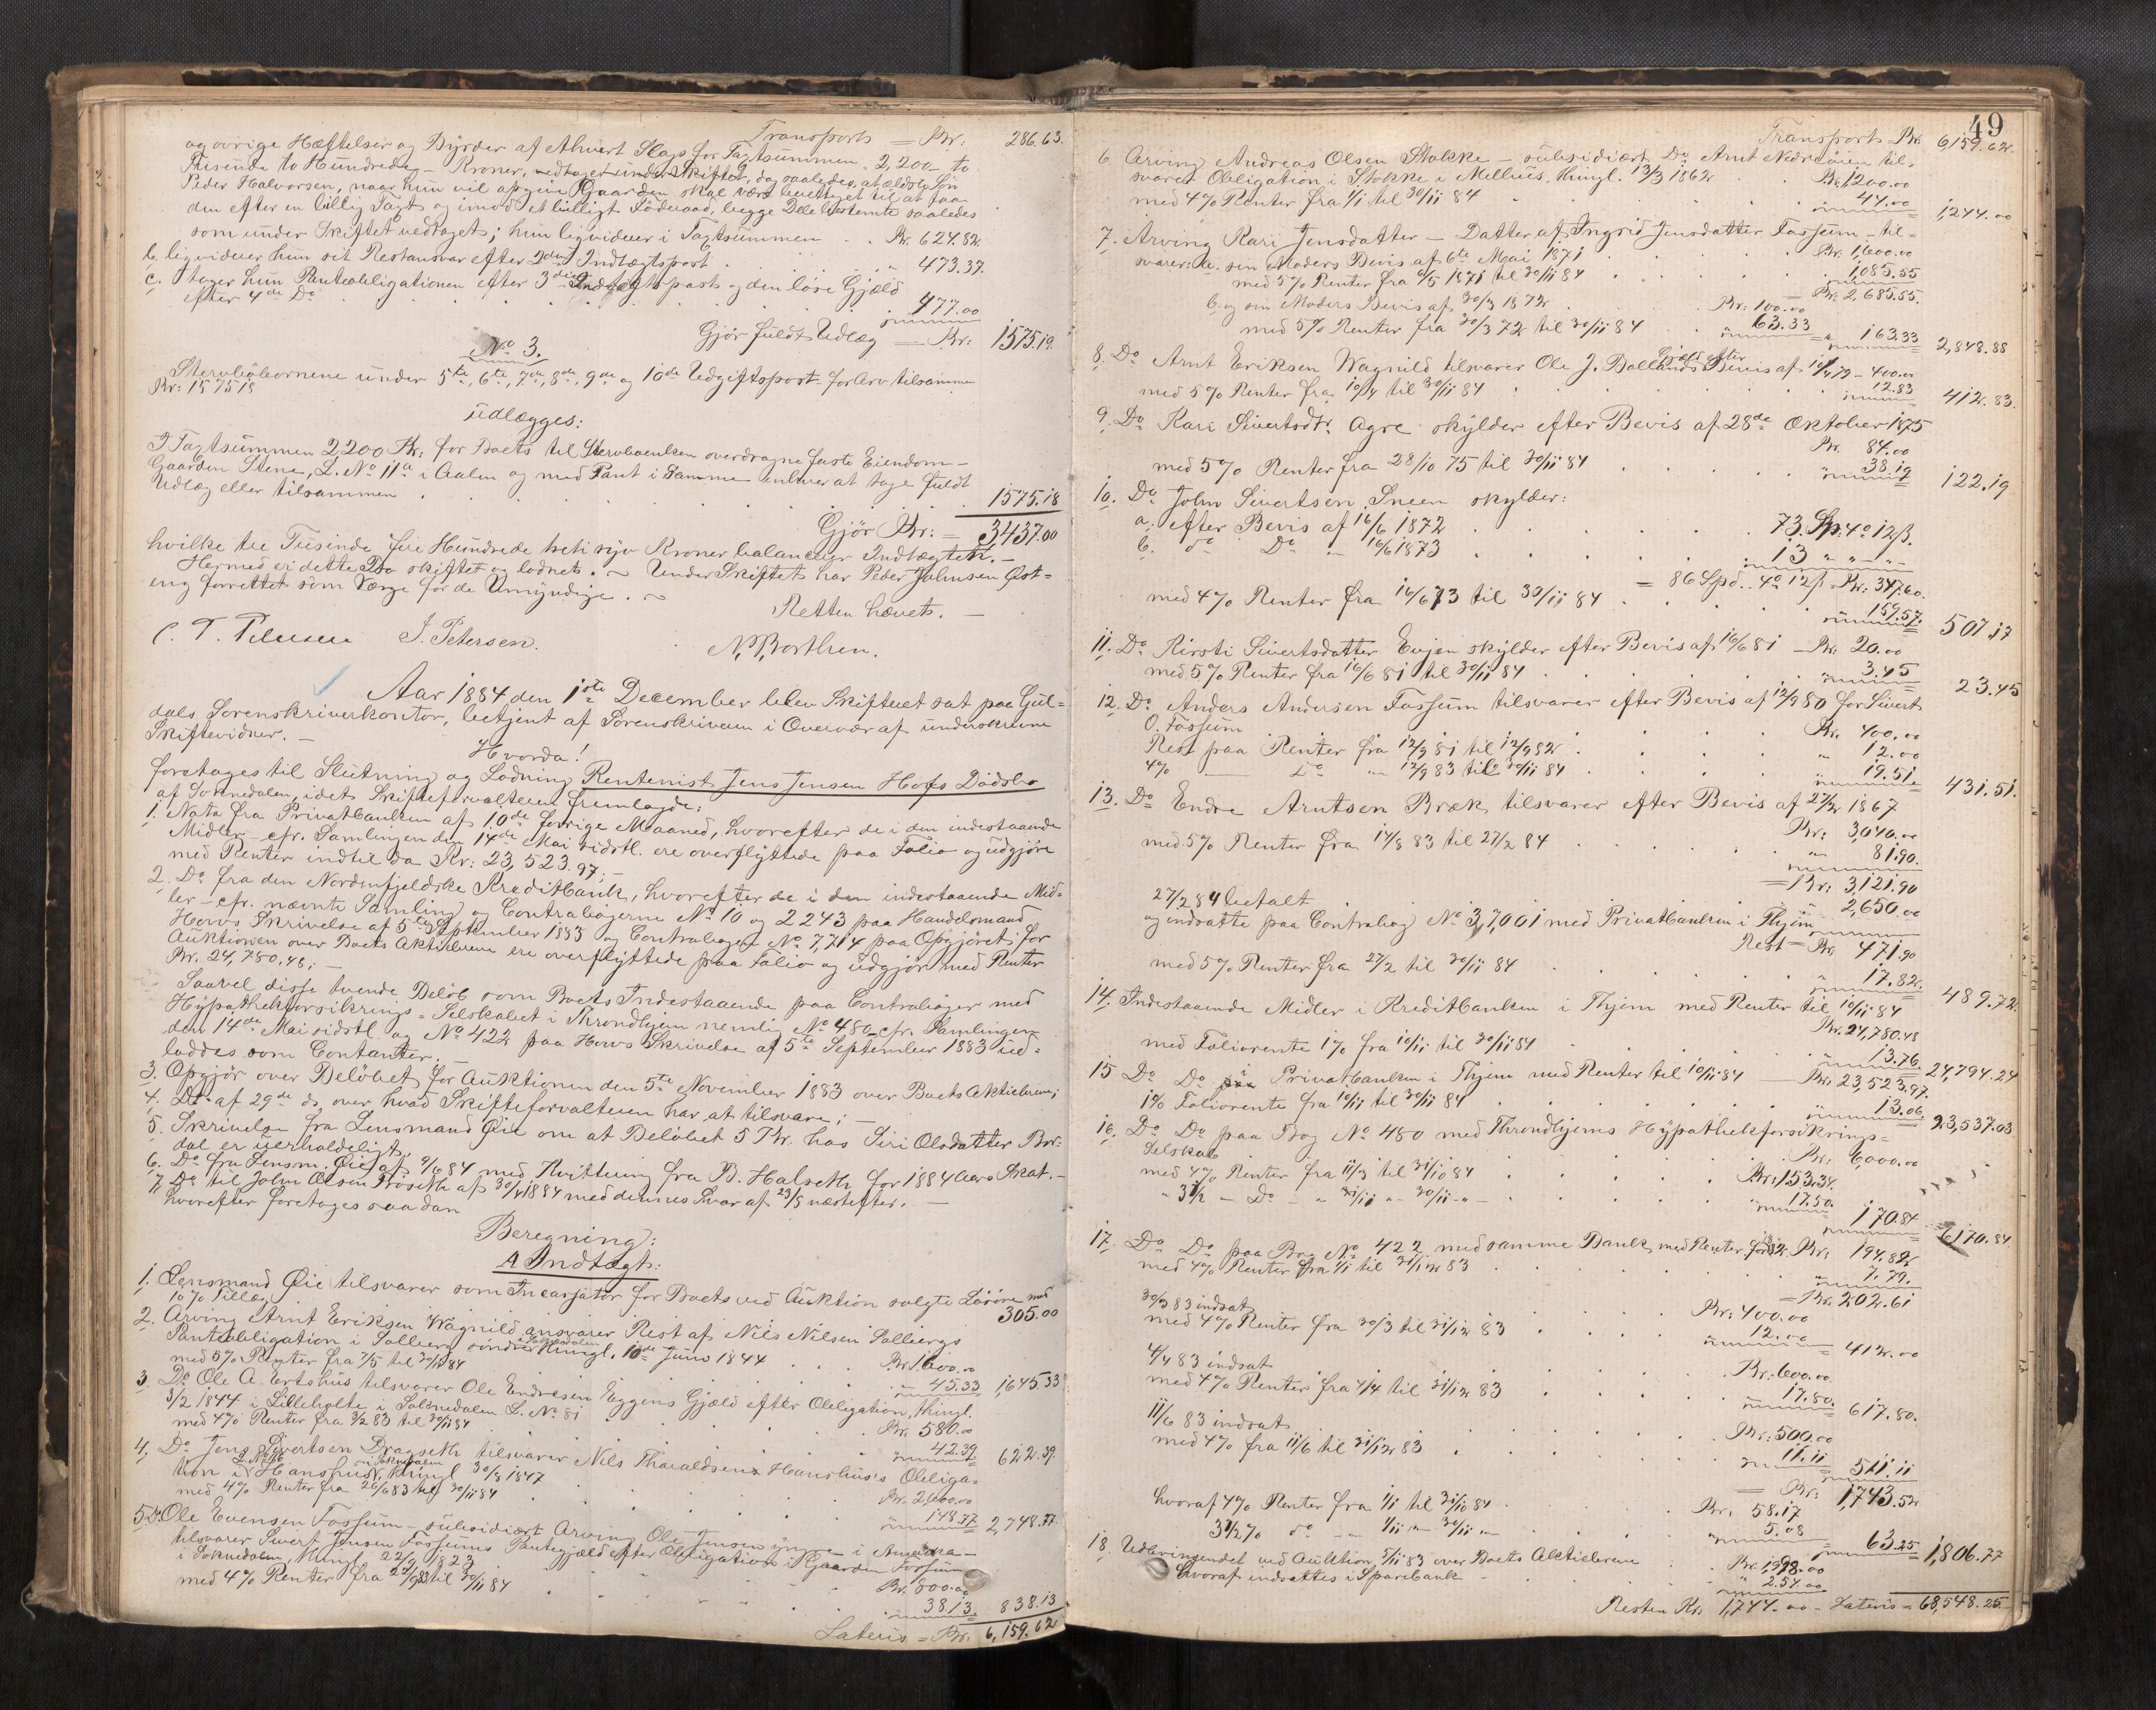 Transport = Kr: 286.63.
og øvrige Hæftelser og Byrder af Ahvert Slags for Taxtsummen 2,200 to
Tusinde to Hundrede Kroner, vedtaget under Skiftet, dog saaledes, at ældste Søn
Peder Halvorsen, naar hun vil afgive Gaarden skal være berettiget til at faa
den efter en billig Taxt og imod et billigt Föderaad, begge Dele bestemte saaledes
som under Skiftet vedtaget; hun liqviderer i Taxtsummen . . Kr. 624.82
b. liqviderer hun sit Restansvar efter 2den Indtægtspost . . . " 473.37.
c. tager hun Panteobligationen efter 3die Indtægtspost og den løse Gjæld
efter 4de Do . . . 477.00
Gjør fuldt Udlæg = Kr: 1575.19.
No 3.
Stervbøbørnene under 5te, 6te, 7de, 8de, 9de og 10de Udgiftspost for Arv tilsammen
Kr: 1575 18
udlægges:
I Taxtsummen 2,200 Kr: for Boets til Stervboenken overdragne faste Eiendom –
Gaarden Stene, L. No 11a i Aalen og med Pant i Samme enhver at tage fuldt
Udlæg eller tilsammen . . . 1575.18
Gjör Kr: = 3437.00
hvilke tre Tusinde fire Hundrede treti syv Kroner balancerer Indtægten. –
Hermed er dette Bo skiftet og lodnet. ~ Under Skiftet har Peder Johnsen Øst=
eng forrettet som Værge for de Umyndige. ~
Retten hævet. –
J. Petersen.
N. Borthen.
Aar 1884 den 1ste December blev Skifteret sat paa Gul=
dals Sorenskriverkontor, betjent af Sorenskriveren i Overvær af underskrevne
Skiftevidner. –
Hvorda!
foretages til Slutning og Lodning Rentenist Jens Jensen Hofs Dödsbo
af Soknedalen, idet Skifteforvalteren fremlagde:
1. Nota fra Privatbanken af 10de forrige Maaned, hvorefter de i den indestaaende
Midler – cfr. Samlingen den 14de Mai sidstl. ere overflyttede paa Folio og udgjöre
med Renter indtil da Kr: 23,523.97; –
2. Do fra den Nordenfjeldske Kreditbank, hvorefter de i den indestaaende Mid=
ler – cfr. nævnte Samling og Contrabøgerne No 10 og 2243 paa Handelsmand
Hovs Skrivelse af 5te September 1883 og Contrabogen No 7,714 paa Opgjöret for
Auktionen over Boets Aktiebreve ere overflyttede paa Folio og udgjör med Renter
Kr. 24,780.48; –
Saavel disse tvende Beløb som Boets Indestaaende paa Contrabøger med
Hypothekforsikrings=Selskabet i Throndhjem nemlig No 480 cfr. Samlingen
den 14de Mai sidstl. og No 422 paa Hovs Skrivelse af 5te September 1883 ud=
loddes som Contanter. –
3. Opgjör over Beløbet for Auktionen den 5te November 1883 over Boets Aktiebreve;
4. Do af 29de ds. over hvad Skifteforvalteren har at tilsvare; –
5. Skrivelse fra Lensmand Øie om at Beløbet 5 Kr. hos Siri Olsdatter Bor=
dal er uerholdeligt.
6. Do fra Lensm. Øie af 9/6 84 med Kvittering fra B. Halseth for 1884 Aars Skat. –
7. Do til John Olsen Röseth af 30/4 1884 med dennes Svar af 23/5 næstefter. –
hvorefter foretages saadan
Beregning:
A Indtægt:
1. Lensmand Øie tilsvarer som Incassator for Boets ved Auktion solgte Lösöre med
10 % Tillæg 305.00
2. Arving Arnt Eriksen Wagnild ansvarer Rest af Nils Nilsen Solbergs
Panteobligation i Solberg söndre i Soknedalen thingl. 10de Juni 1844 . . . Kr. 1600.00
med 5% Renter fra 7/5 til 30/11 84 . . . 45.33 1,645.33
3. Do Ole A. Ertshus tilsvarer Ole Endresen Eggens Gjæld efter Obligation, thingl.
3/2 1844 i Lilleholte i Soknedalen L. No 81 . . . Kr. 580.00
med 4% Renter fra 3/2 83 til 30/11 84 . . . 42.39 622.39.
4. Do Jens Sivertsen Dragseth tilsvarer Nils Tharaldsens Hanshus's Obliga=
tion i Hanshus i Soknedalen, thingl 30/8 1847 . . . Kr. 2,600.00
med 4% Renter fra 26/6 83 til 30/11 84 . . . 148.77 2,748.77.
5. Do Ole Evensen Fossum – subsidiært Arving Ole Jensen yngre i Amerika –
tilsvarer Sivert Jensen Fossums Pantegjæld efter Obligation i Gaarden Fossum
i Soknedalen, thingl. 22/9 1823 . . . Kr. 800.00
med 4% Renter fra 22/9 83 til 30/11 84 . . . 38.13. 838.13
Lateris = Kr. 6,159.62
49
Transport Kr. 6159.62.
6. Arving Andreas Olsen Stokke – subsidiært Do Arnt Nedreöien til=
svarer Obligation i Stokke i Melhus, thingl. 13/3 1862 . . Kr. 1200.00
med 4% Renter fra 1/1 til 30/11 84 . . . 44.00 1,244.00
7. Arving Kari Jensdatter – Datter af Ingrid Jensdatter Fossum – til=
svarer: a. sin Moders Bevis af 6te Mai 1871 . . . Kr. 1,600.00
med 5% Renter fra 6/5 1871 til 30/11 84 . . . 1,085.55
= Kr. 2,685.55.
b. og sin Moders Bevis af 30/3 1872 . . Kr: 100.00
med 5% Renter fra 30/3 72 til 30/11 84 . . 63.33 = " 163.33 2,848.88
8. Do Arnt Eriksen Wagnild tilsvarer Ole J. Bollands Gjæld efter Bevis af 10/4 79 – 400.00
med 5% Renter fra 10/4 til 30/11 84 . . . 12.83 412.83.
9. Do Kari Sivertsdtr. Agre skylder efter Bevis af 28de Oktober 1875
Kr. 84.00
med 5% Renter fra 28/10 75 til 30/11 84 . . . 38.19 122.19
10. Do John Sivertsen Sneen skylder:
a. efter Bevis af 16/6 1872 . . . 73 Sp: 4 o 12 ß.
b. do Do " 16/6 1873 . . . 13 " " "
= 86 Spd. 4 o 12 ß = Kr: 347.60.
med 4% Renter fra 16/6 73 til 30/11 84 . . . 159.57. 507.17
11. Do Kirsti Sivertsdatter Evjen skylder efter Bevis af 16/6 81 – Kr. 20.00
med 5% Renter fra 16/6 81 til 30/11 84 . . . 3.45 23.45
12. Do Anders Andersen Fossum tilsvarer efter Bevis af 12/9 80 for Sivert
O. Fossum . . . Kr. 400.00
Rest paa Renter fra 12/9 81 til 12/9 82 . . . " 12.00
4% – Do " 12/9 83 til 30/11 84 . . . 19.51. 431.51.
13. Do Endre Arntsen Bræk tilsvarer efter Bevis af 27/2 1867
Kr: 3,040.00
med 5% Renter fra 14/8 83 til 27/2 84 . . . " 81.90.
= Kr: 3,121.90
27/2 84 betalt . . . " 2,650.00
og indsatte paa Contrabog No 37,001 med Privatbanken i Thjem
Rest = Kr. 471.90
med 5% Renter fra 27/2 til 30/11 84 . . . 17.82. 489.72.
14. Indestaaende Midler i Kreditbanken i Thjem med Renter til 10/11 84
Kr. 24,780.48
med Foliorente 1% fra 10/11 til 30/11 84 . . . 13.76. 24,794.24
15 Do Do i Privatbanken i Thjem med Renter til 10/11 84 Kr. 23,523.97.
1% Foliorente fra 10/11 til 30/11 84 . . . 13.06. 23,537.03
16. Do Do paa Bog No 480 med Throndhjems Hypothekforsikrings=
Selskab . . . Kr: 6,000.00
med 4% Renter fra 11/3 til 31/10 84 . . . Kr: 153.34.
" 3½ – Do – " 31/10 " 30/11 " . . . 17.50. 170.84 6170.84
17. Do Do paa Bog No 422 med samme Bank med Renter for 82 Kr. 194.82
med 4% Renter fra 1/1 til 31/12 83 . . . 7.79.
= Kr. 202.61
30/3 83 indsat . . . Kr: 400.00
med 4% Renter fra 30/3 til 31/12 83 . . . 12.00 = 412.00
4/4 83 indsat . . . Kr. 600.00.
med 4% Renter fra 4/4 til 31/12 83 . . . 17.80. 617.80.
11/6 83 indsat . . . Kr: 500.00
med 4% fra 11/6 til 31/12 83 . . . 11.11 511.11
= Kr: 1,743.52
hvoraf 4% Renter fra 1/1 til 31/10 84 . . . Kr. 58.17
3½% do " 1/11 " 30/11 " . . . 5.08 = 63.25 1,806.77
18. Udbringendet ved Auktion 5/11 83 over Boets Aktiebreve . . Kr. 1,998.00
hvoraf indsattes i Sparebank . . . " 254.00
Resten Kr. 1,744.00 – Lateris = 68,548.25